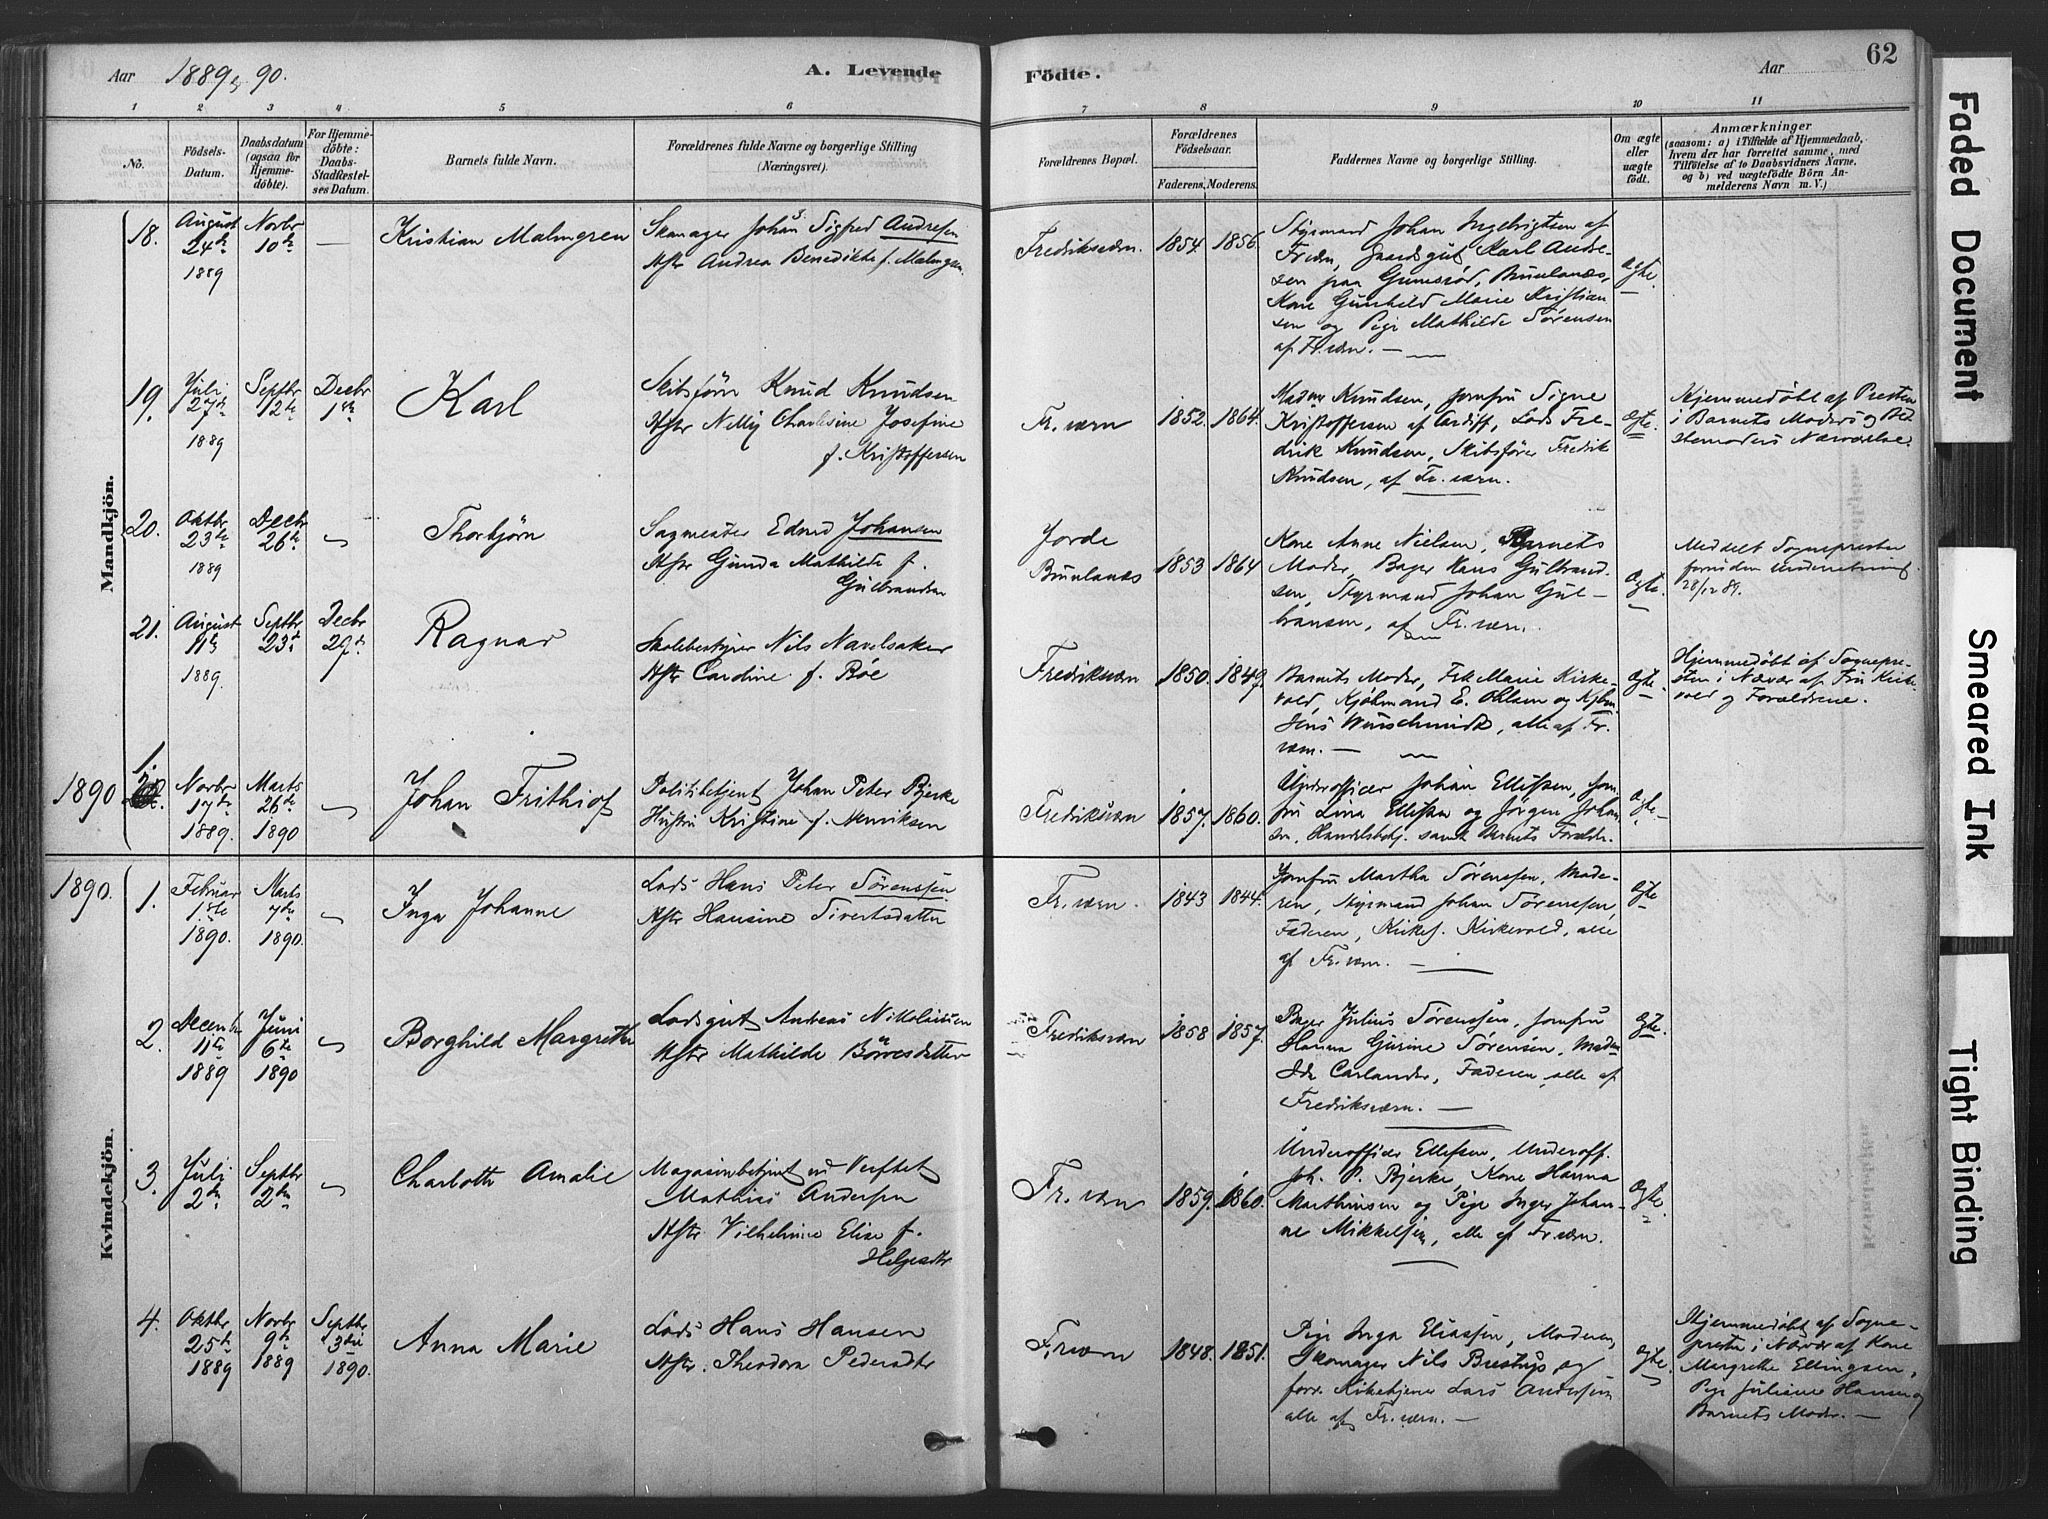 Aar 1889 & 90. A. Levende Födte. Aar 62
1 2 3 4 5 6 7 8 9 10 11
No.
Födsels-
Datum.
Daabsdatum
(ogsaa for
Hjemme-
döbte).
For Hjemme-
döbte:
Daabs-
Stadfæstel-
ses Datum.
Barnets fulde Navn.
Forældrenes fulde Navne og borgerlige Stilling
(Næringsvei).
Forældrenes Bopæl.
Forældrenes
Födselsaar.
Faderens. Moderens.
Faddernes Navne og borgerlige Stilling.
Om ægte
eller
uægte
födt.
Anmærkninger
(saasom: a) i Tilfælde af Hjemmedaab,
hvem der har forrettet samme, med
Tilföielse af to Daabsvidners Navne,
og b) ved uægtefödte Börn An-
melderens Navn m. V.)
Mandkjön.
18.
August
24de
1889
Novbr
10de
—
Kristian Malmgren
Skomager Johan Sigfred Andresen
Hstr Andrea Benedikte f. Malmgren
Fredriksværn.
1854. 1856.
Styrmand Johan Ingebrigtsen af
Fr.værn, Gaardsgut Karl Andre-
sen paa Gumserød, Brunlanæs,
Kone Gunhild Marie Kristian
sen og Pige Mathilde Sørensen
af Fr.værn. —
ægte.
19.
Juli
27de
1889
Septbr
12te
Decbr
1ste
Karl
Skibsförer Knud Knudsen
Hstr Nelly Charlesine Josefine
f. Kristoffersen
Fr. værn
1852. 1864.
Madam Knudsen, Jomfru Signe
Kristoffersen af Cardiff, Lods Fre-
drik Knudsen, Skibsförer Fredrik
Knudsen, af Fr. værn.
ægte.
Hjemmedöbt af Presten
i Barnets Moders og Be-
stemoders Nærværelse.
20.
Oktbr
23de
1889
Decbr
26te
Thorbjörn
Sagmester Edvard Johansen
Hstr Gunda Mathilde f.
Gulbrandsen
Jorde
Brunlanæs
1853 1864
Kone Anne Nielsen, Barnets
Moder, Bager Hans Gulbrand-
sen, Styrmand Johan Gul-
bransen, af Fr. værn.
ægte.
Meddelt Sognepresten
28/12 89.
21.
August
11te
1889.
Septbr
23de
Decbr
29de
Ragnar
Skolebestyrer Nils Navelsaker
Hstr Cardine f. Röe
Fredriksværn
1850. 1849.
Barnets Moder, Frk Marie Kirke-
vold, Kjöbmand E. Ohlsen og Kjbm
Jens Wurschmidt, alle af Fr.
værn. —
ægte.
Hjemmedöbt af Sognepre-
sten i Nærvær af Fru Kirke-
vold og Forældrene.
1890
1.
Novbr
17de
1889.
Marts
26de
1890
Johan Frithiof
Politibetjent Johan Peter Bjerke
Hustru Kristine f. Henriksen
Fredriksværn
1857. 1860.
Underofficer Johan Ellefsen, Jom-
fru Lina Ellefsen og Jörgen Johan
sen, Handelsbetj. samt Barnets Forældre.
ægte
Kvindekjön.
1890.
1.
Februar
1ste
1890.
Marts
7de
1890.
Inga Johanne
Lods Hans Peter Sørenssen
Hstr Hansine Sivertsdatter
Fr. værn.
1843 1844.
Jomfru Martha Sørenssen, Mode-
ren, Styrmand Johan Sørenssen,
Faderen, Kirkes. Kirkevold, alle
af Fr. værn. —
ægte
2.
Decembr
11te
1889
Juni
6te
1890
Borghild Margrethe
Lodsgut Andreas Nikolaisen
Hstr Mathilde Börresdatter
Fredriksværn
1858 1857.
Bager Julius Sørenssen, Jomfru
Hanna Gusine Sørensen, Madam
Ida Carlander, Faderen, alle af
Fredriksværn. —
ægte.
3.
Juli
2den
Septbr
2den
Charlotte Amalie
Magasinbetjent ved Verftet
Mathias Andersen
Hstr Vilhelmine Elise f.
Helgesdtr
Fr. værn
1859. 1860.
Underofficer Ellefsen, Underoff.
Joh. P. Bjerke, Kone Hanna
Marthinsen og Pige Inger Johan-
ne Mikkelsen, alle af Fr.værn.
ægte.
4.
Oktbr
25de
1889
Novbr
9de
1889
Septbr
3die
1890.
Anna Marie
Lods Hans Hansen
Hstr. Theodora Pedersdtr
Fr.værn
1848. 1851.
Pige Inga Eliassen, Moderen,
Skomager Nils Brestrup og
forr. Kirketjener Lars Andersen
alle af Fr. værn. —
ægte
Hjemmedöbt af Sogne-
presten i Nærvær af Kone
Margrethe Ellingsen,
Pige Juliane Hansen og
Barnets Moder. —
Faded Document
Smeared Ink
Tight Binding